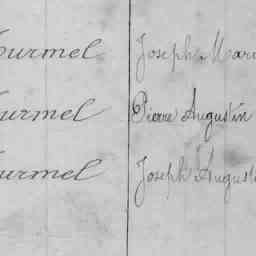 ourmel Joseph Mari
ourmel Pierre Augustin
ourmel Joseph August